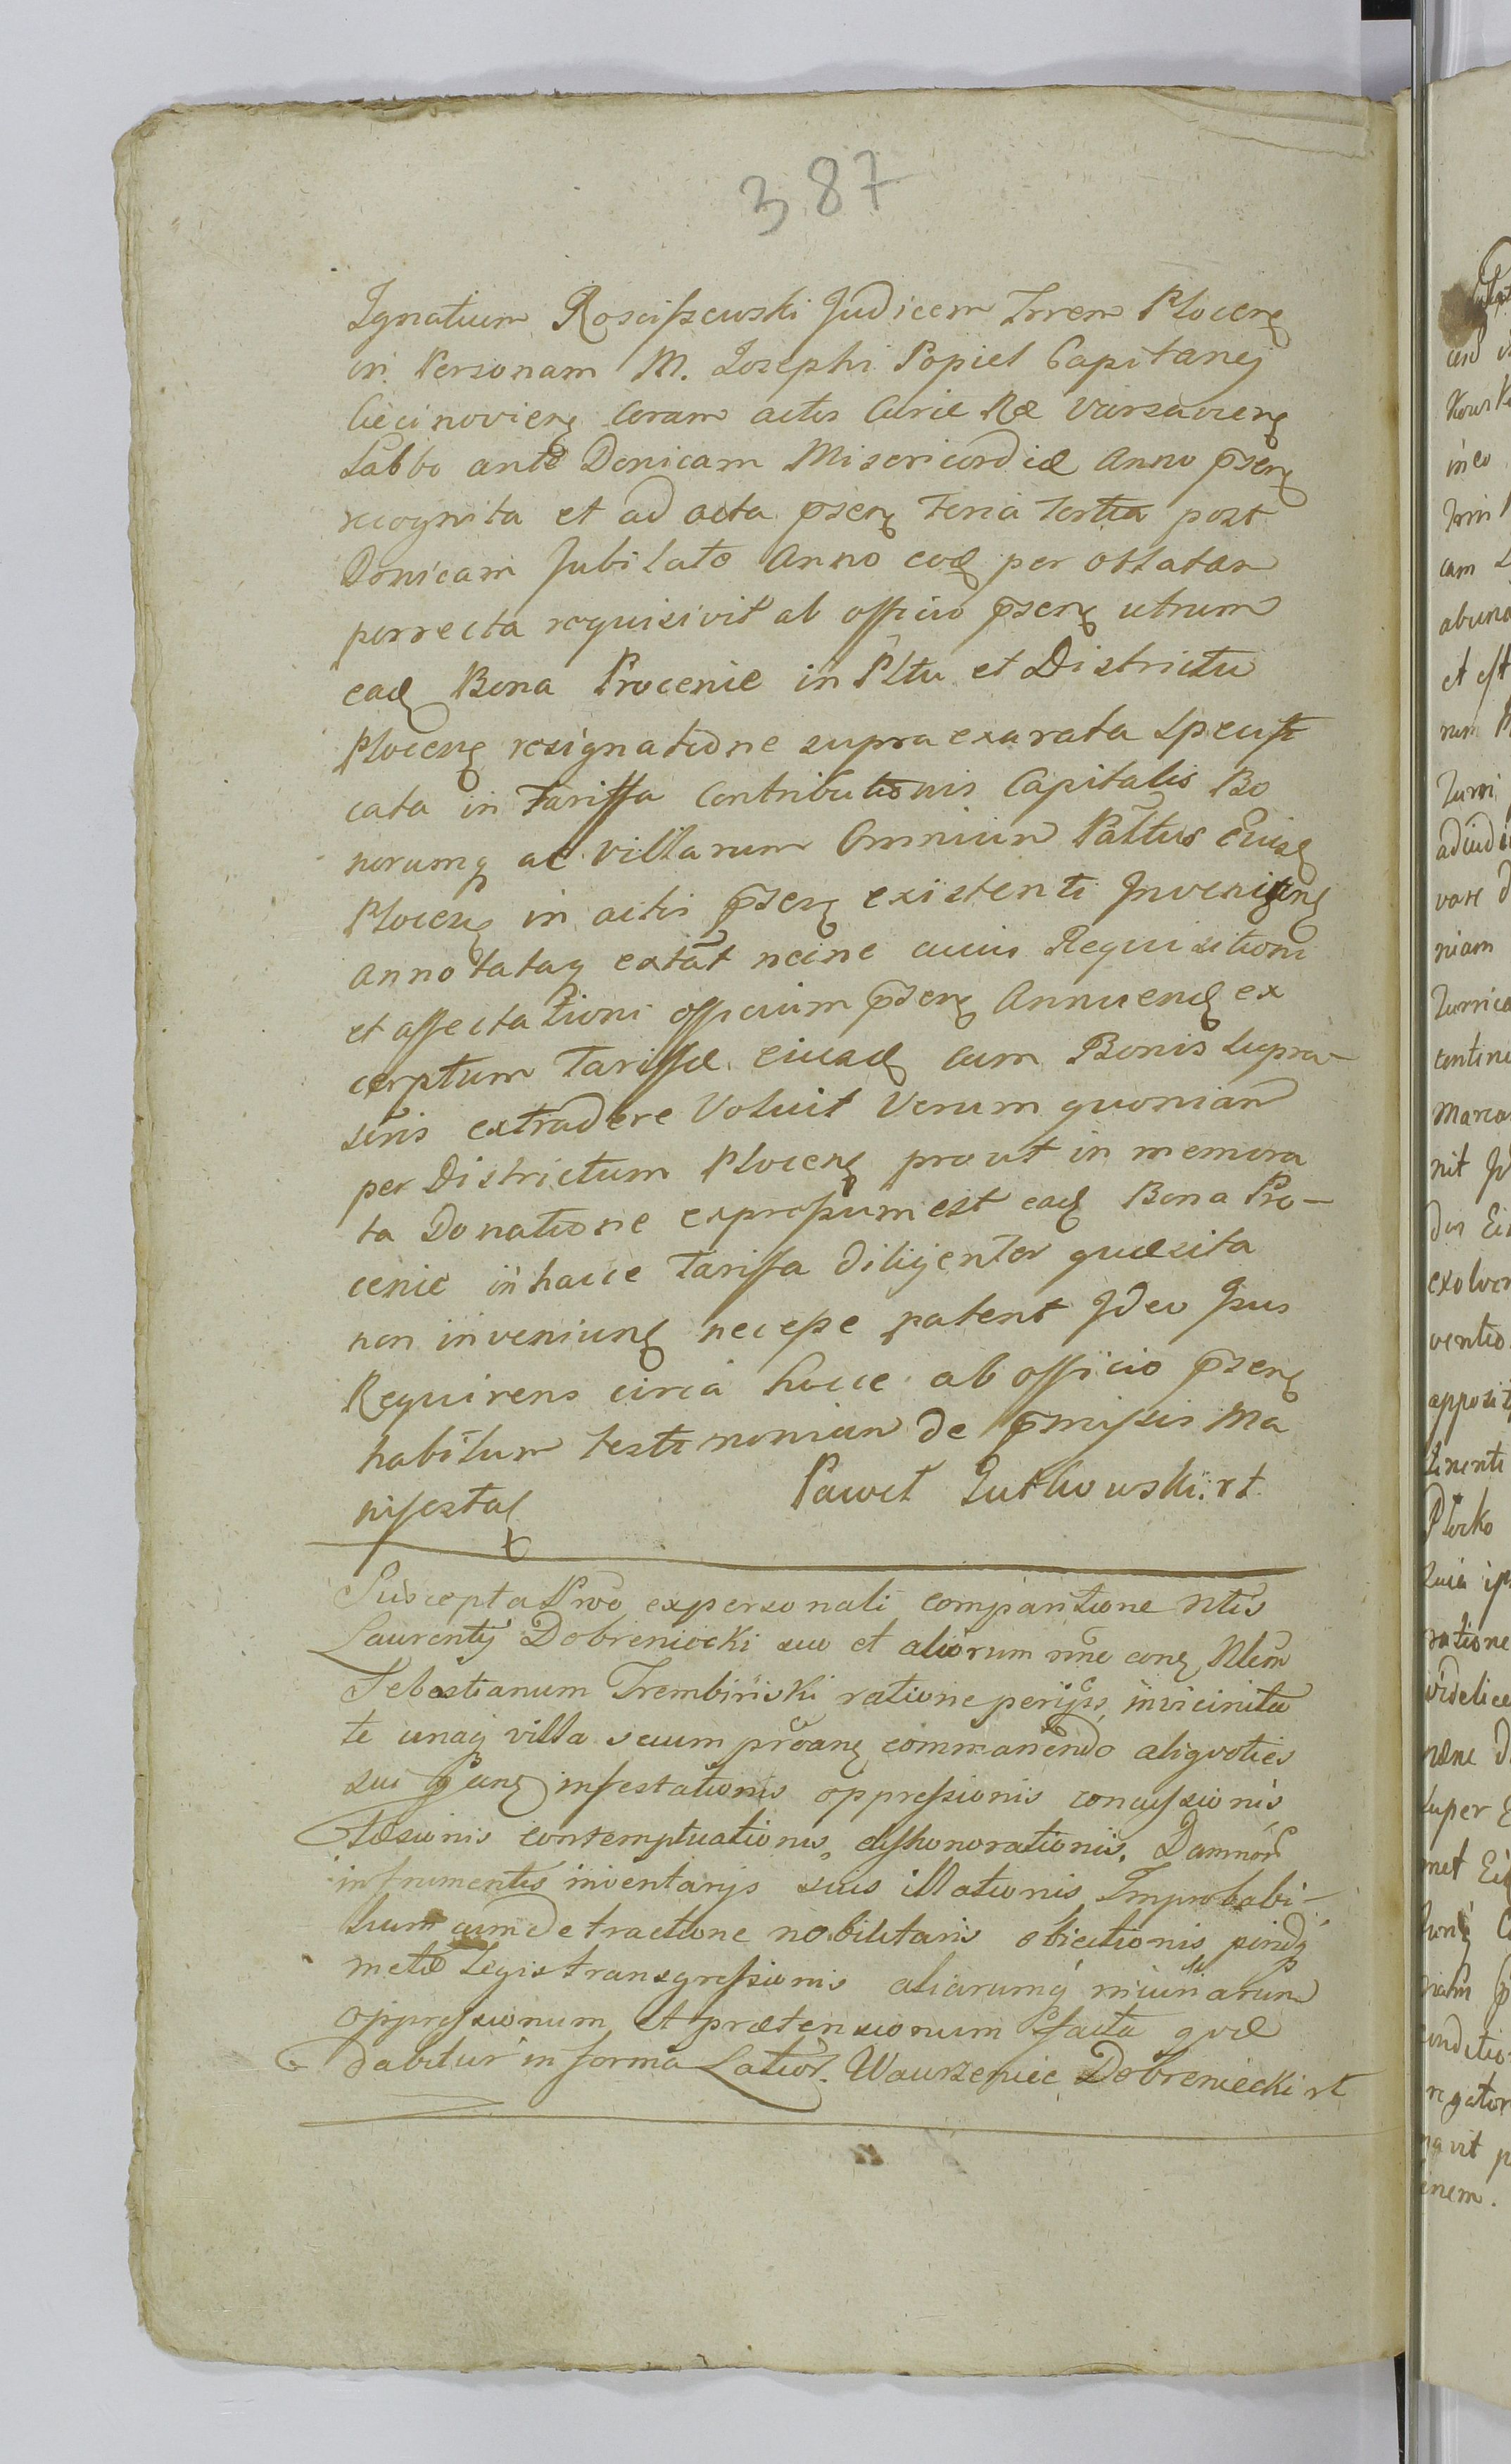 387
Ignatium Rosciszewski Judicem Trrem Plocenʒ
in Personam M. Josephi Popiel Capitanej
Ciecinovienʒ Coram actis Curiæ Ræ Varsavienʒ
Sabbo ante Donicam Misericordiæ Anno pʒenʒ
recognita et ad acta pʒenʒ Feria tertia post
Donicam Jubilate Anno eodʒ per oblatam
porrecta requisivit ab officio pʒenʒ utrum
eadʒ Bona Procenie in Pltu et Districtu
Plocenʒ resignatione supra exarata specifi
cata in Tariffa Contributionis Capitalis Bo
norumqʒ ac villarum Omnium Pallus Eiusdʒ
Plocenʒ in actis pʒenʒ existenti Inveniunʒ
annotataqʒ extãt necne cuius Requisitioni
et affectationi officium pʒenʒ Annuendʒ ex
cerptum Tariffæ eiusdʒ cum Bonis supra-
scris extradere Voluit Verum quoniam
per Districtum Plocenʒ prout in memora
ta Donatione expressum est eadʒ Bona Pro-
cenie in hacce Tariffa diligenter quæsita
non inveniunʒ necesse patent Ideo Ipus
Requirens circa hocce ab officio pʒenʒ
habitum testimonium de pmissis Ma
nifestaʒ
Paweł Gutkowski. rt
Suscepta Pwo expersonali comparitione Ntis
Laurentij Dobreniecki suo et aliorum nne conʒ Nlem
Sebastianum Trembiński ratione in vicinita
te unaqʒ villa secum commanendo aliquoties
sui infestationis oppressionis concussionis
læsionis contemptuationis, dishonorationis, Damnor
in frumentis inventarijs suis illationis Improbabi-
lium cum detractione nobilitaris obiectionis
metæ Legis transgressionis aliarumqʒ iniuriarum
oppressionum et prætensionum facta quæ
dabitur in forma Latior. Wawrzeniec Dobreniecki rt